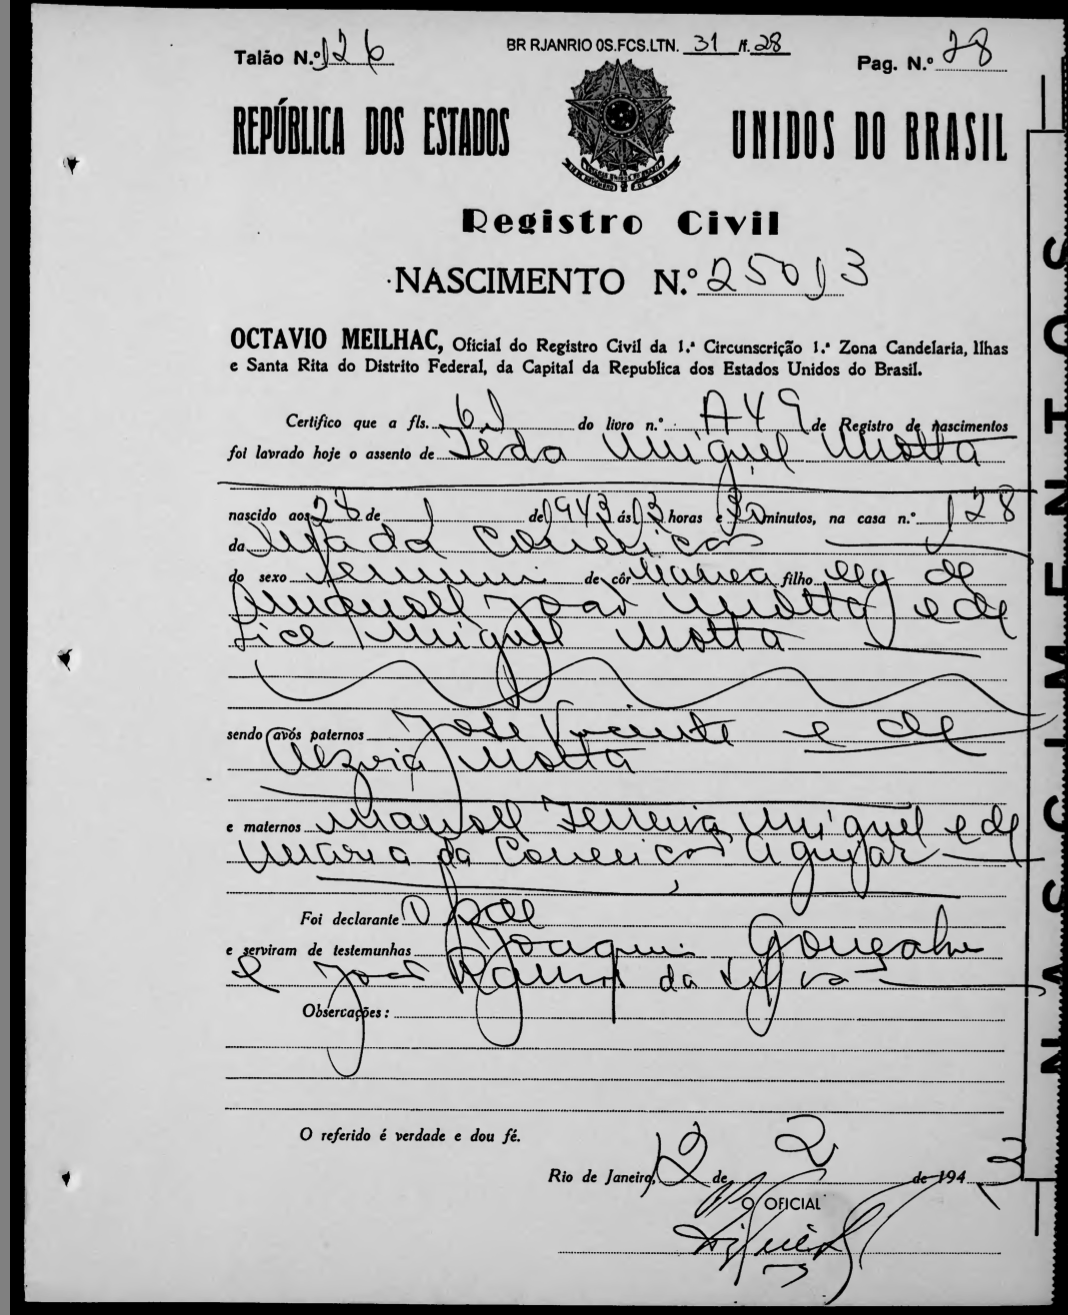 Talão N.º 126
BR RJANRIO 0S.FCS.LTN. 31 n. 28
Pag. N.º 28
REPÚBLICA DOS ESTADOS UNIDOS DO BRASIL
Registro Civil
NASCIMENTO N.º 25013
OCTAVIO MEILHAC, Oficial do Registro Civil da 1.ª Circunscrição 1.ª Zona Candelaria, Ilhas
e Santa Rita do Distrito Federal, da Capital da Republica dos Estados Unidos do Brasil.
Certifico que a fls. 61 do livro n.º A49 de Registro de nascimentos
foi lavrado hoje o assento de Miguel Motta
nascido aos 28 de 1 de 1943 ás 13 horas e 30 minutos, na casa n.º 128
da Conceicão
do sexo feminino de côr branca filho de
Manoel João Motta e de
Miguel Motta
sendo avós paternos José Vicente e de
Motta
e maternos Manoel Ferreira Miguel e de
Maria da Conceicão Aguiar
Foi declarante O pae
e serviram de testemunhas Joaquim Gonçalves
e José Ramos da Silva
Observações:
O referido é verdade e dou fé.
Rio de Janeiro, 12 de 2 de 1943
O OFICIAL
NASCIMENTOS